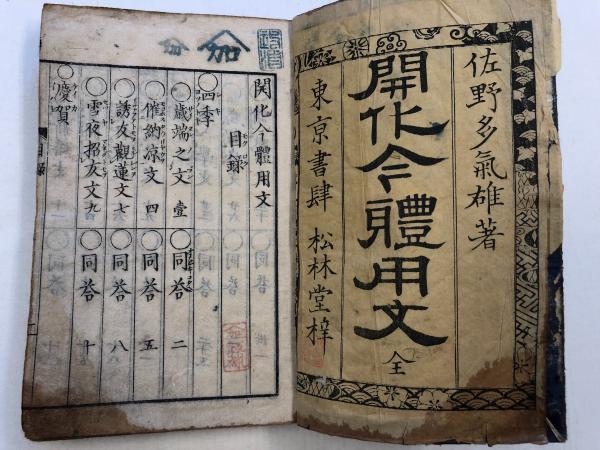 佐野多氣雄著
開化今體用文
全
東京書肆 松林堂梓
開化今體用文
目録
○四季
○歳端之文 壹 ○同答 二
○催納凉文 四 ○同答 五
○誘友觀蓮文 七 ○同答 八
○雪夜招友文 九 ○同答 十
○慶賀
目録